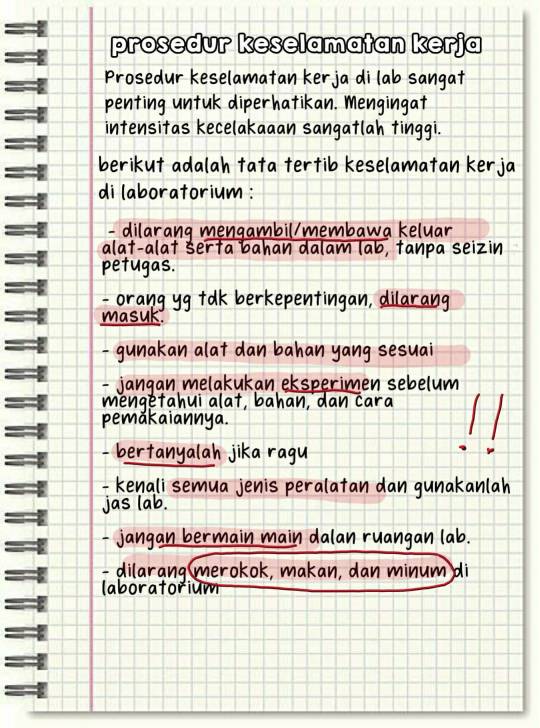 prosedur keselamatan kerja
Prosedur keselamatan kerja di lab sangat
penting untuk diperhatikan. Mengingat
intensitas kecelakaaan sangatlah tinggi.
berikut adalah tata tertib keselamatan kerja
di laboratorium :
- dilarang mengambil/membawa keluar
alat-alat serta bahan dalam lab, tanpa seizin
petugas.
- orang yg tdk berkepentingan, dilarang
masuk.
- gunakan alat dan bahan yang sesuai
- jangan melakukan eksperimen sebelum
mengetahui alat, bahan, dan cara
pemakaiannya.
!!
- bertanyalah jika ragu
- kenali semua jenis peralatan dan gunakanlah
jas lab.
- jangan bermain main dalan ruangan lab.
- dilarang merokok, makan, dan minum di
laboratorium